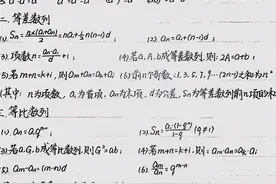 二. 等差数列
(1). Sn = n×(a₁+an)/2 = na₁ + ½n(n-1)d
(2). an = a₁+(n-1)d ;
(3). 项数 n = (an-a₁)/d + 1 ;
(4) 若a, A, b成等差数列, 则: 2A = a+b ;
(5) 若 m+n=k+i, 则 am+an=ak+ai
(6) 前n个奇数: 1, 3, 5, 7, 9…(2n-1)之和为n²
(其中: n为项数, a₁为首项, an为末项, d为公差, Sn为等差数列前n项的和
三. 等比数列
(1). an = a₁qⁿ⁻¹ ;
(2). Sn = a₁·(1-qⁿ)/(1-q) (q≠1)
(3) 若a. G. b成等比数列, 则 G² = ab ;
(4) 若 m+n=k+i, 则: am·an=ak·ai
(5) am-an=(m-n)d
(6) am/an = q^(m-n)